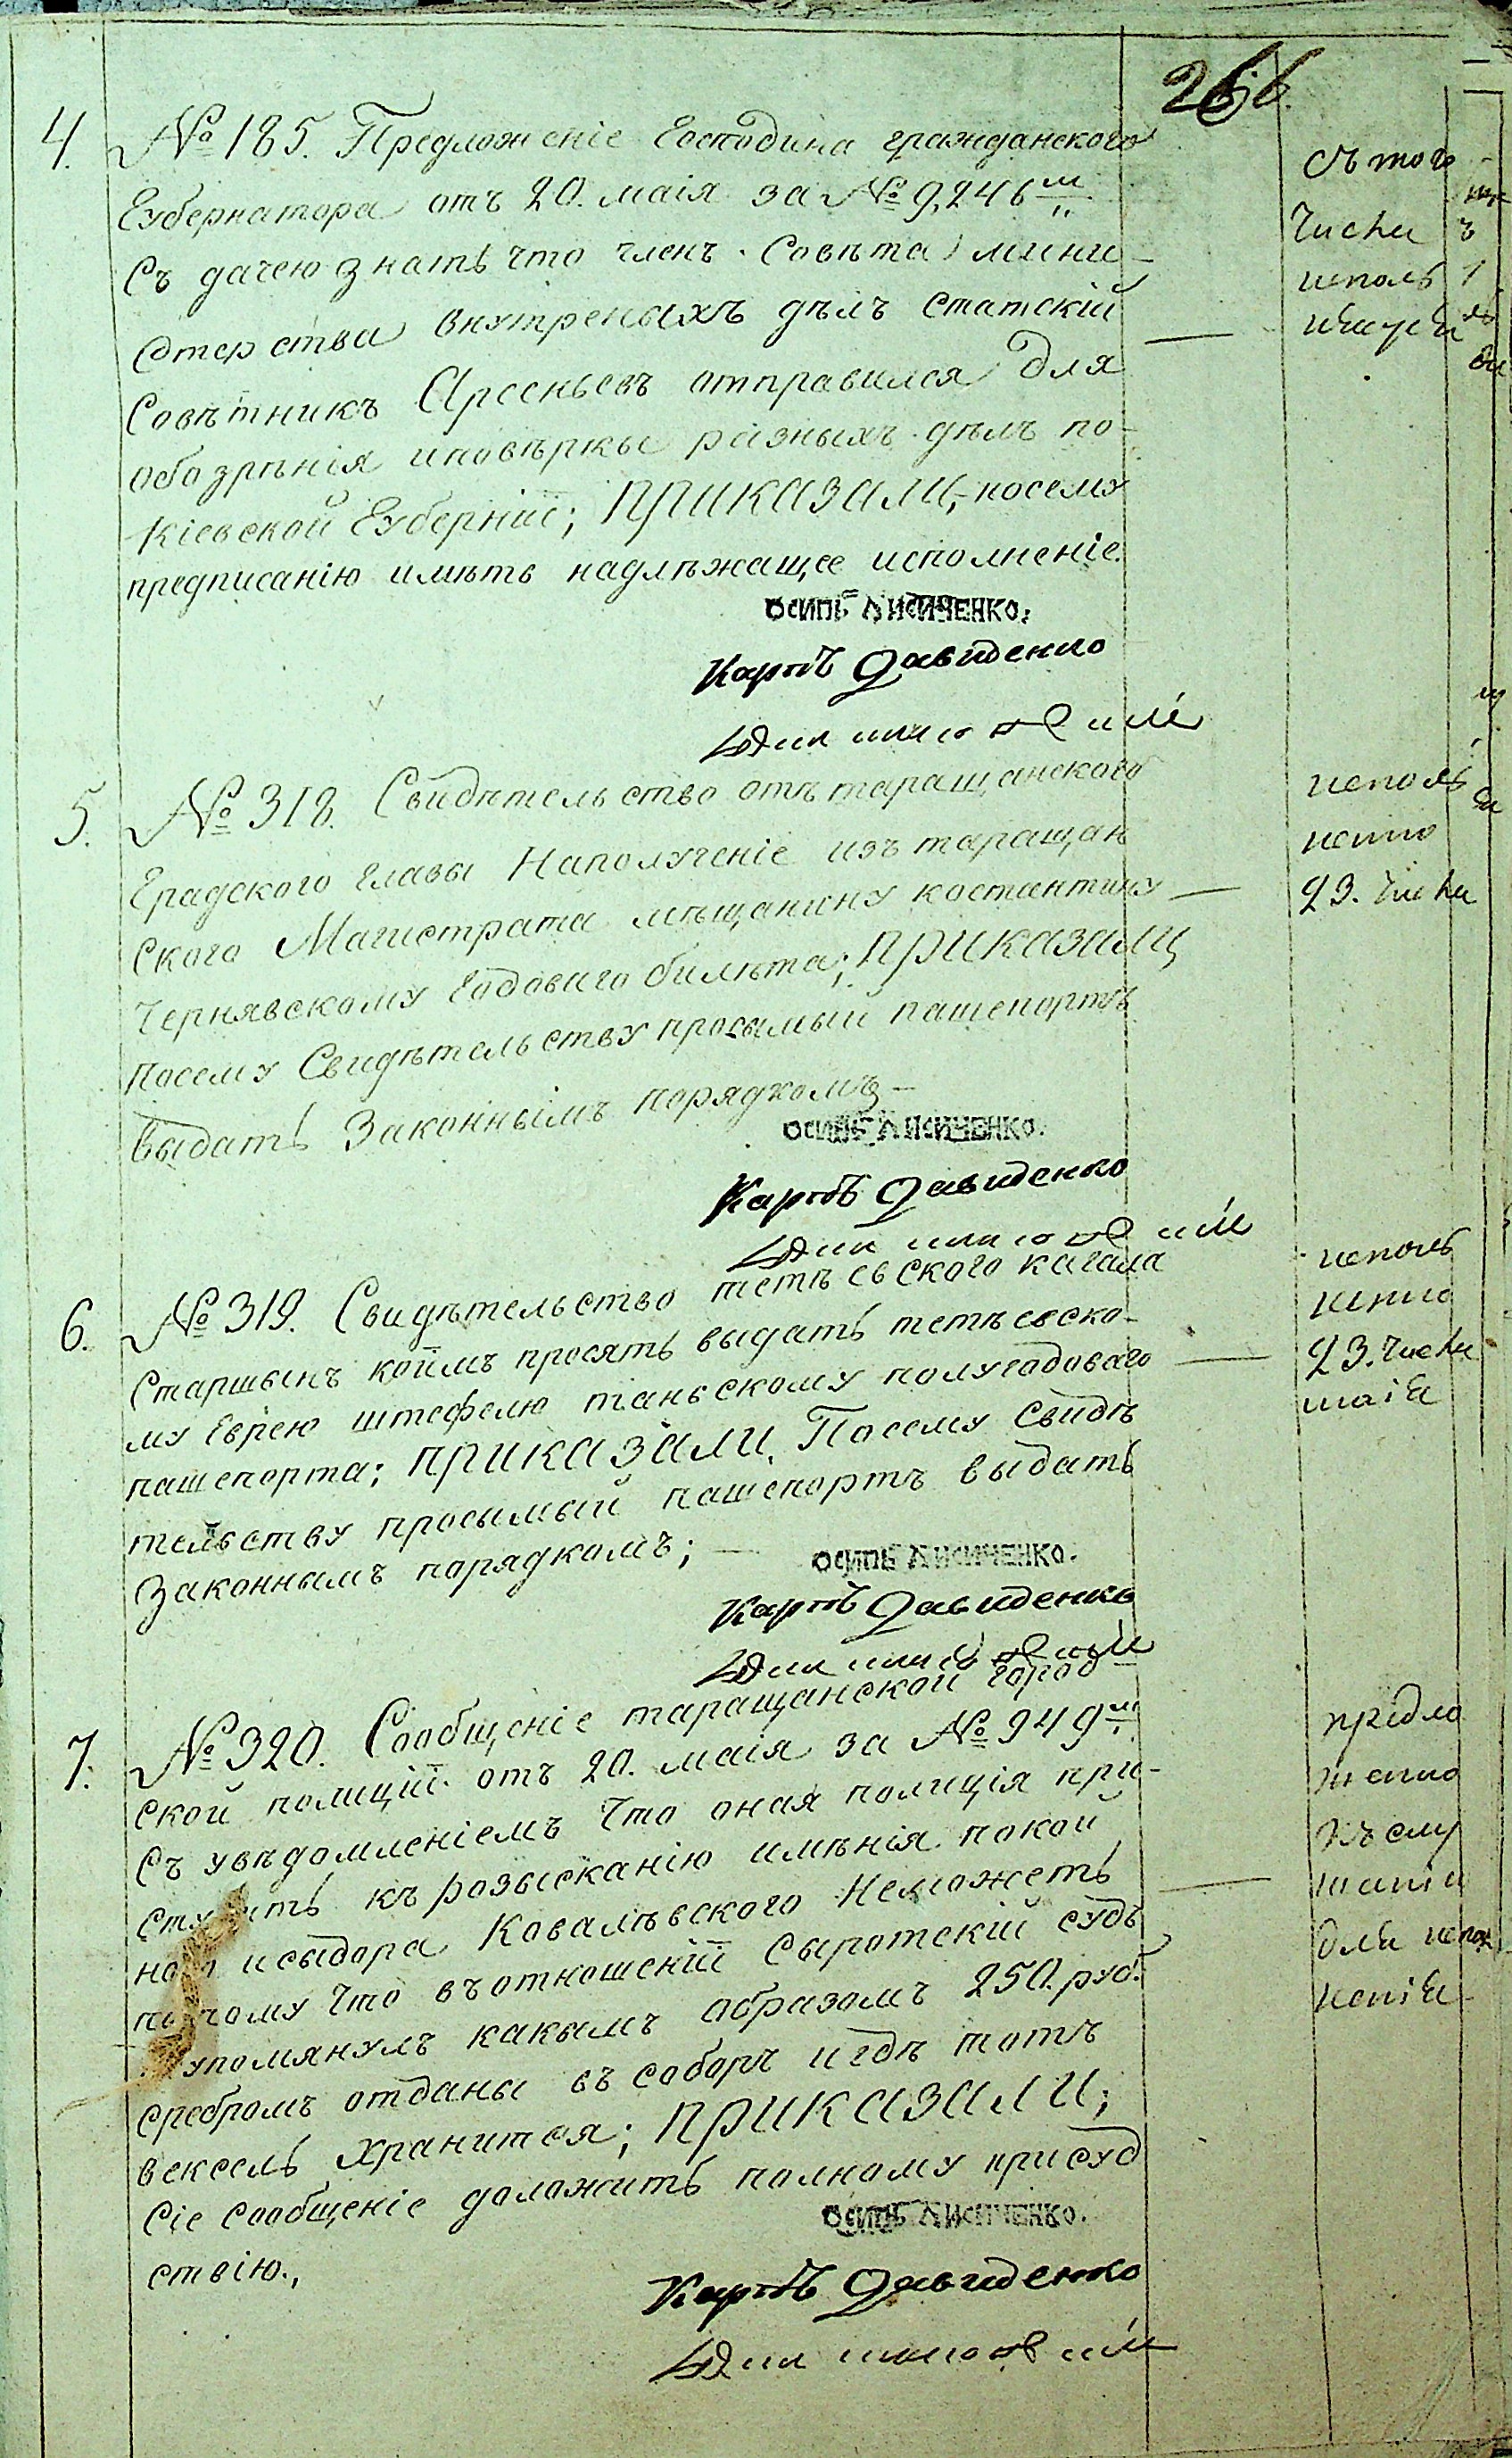 266.
4. № 185. Предложеніе Господина гражданского
Губернатора отъ 20. маія за № 9,246м
Съ дачею знать что членъ Совѣта мини-
стерства внутреныхъ дѣлъ статскій
Совѣтникъ Арсеньевъ отправился для
обозрѣнія иповѣркы разныхъ дѣлъ по-
Кіевской Губерніи; приказали, посему
предписанію имѣть надлѣжащее исполненіе.
съ того
числа
исполъ
осипъ Лисиченко.
Карпъ Давиденко
5. № 318. Свидѣтельство отъ таращанского
Градского главы Наполученіе изъ таращан
ского Магистрата мѣщанину костантину
Чернявскому Годоваго билѣта; приказали
посему Свидѣтельству просымый пашепортъ
выдать Законнымъ порядкомъ-
исполъ
нено
23. числа
осипъ Лисиченко.
Карпъ Давиденко
6. № 319. Свидѣтельство тетѣевского кагала
Старшынъ коимъ просятъ выдать тетѣевско-
му Еврею штефелю піаньскому полугодоваго
пашепорта; приказали, Посему Свидѣ
тельству просымый пашепортъ выдать
Законнымъ порядкомъ;
исполъ
нено
23. числа
маія
осипъ Лисиченко.
Карпъ Давиденко
7. № 320. Сообщеніе таращанской город
ской полиціи отъ 20. маія за № 949м
Съ увѣдомленіемъ Что оная полиція при-
къ розысканію имѣнія покой
исыдора Ковалѣвского Неможетъ
Что въотношеніи Сыротскій судъ
упомянулъ какымъ образомъ 250. руб.
сребромъ отданы въ соборъ игдѣ тотъ
вексель хранится; приказали;
Сіе Сообщеніе доложить полному присуд
ствію.,
предло
жено
къ слу
шанію
для испол
ненія
осипъ Лисиченко.
Карпъ Давиденко